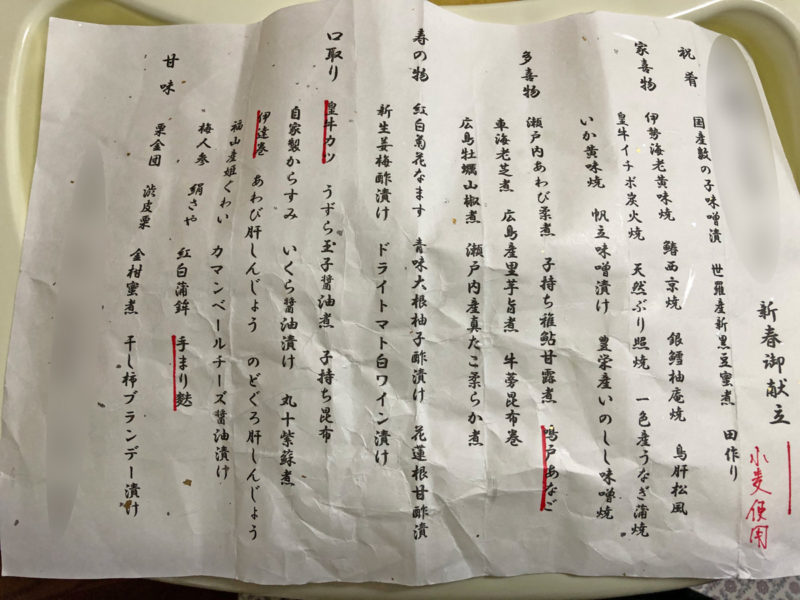 新春御献立
小麦使用
祝肴
国産数の子味噌漬 世羅産新黒豆蜜煮 田作り
家喜物
伊勢海老黄味焼 鰆西京焼 銀鱈柚庵焼 鳥肝松風
皇牛イチボ炭火焼 天然ぶり照焼 一色産うなぎ蒲焼
いか黄味焼 帆立味噌漬け 豊栄産いのしし味噌焼
多喜物
瀬戸内あわび柔煮 子持ち稚鮎甘露煮 鳴戸あなご
車海老芝煮 広島産里芋旨煮 牛蒡昆布巻
広島牡蠣山椒煮 瀬戸内産真たこ柔らか煮
寿の物
紅白菊花なます 青味大根柚子酢漬け 花蓮根甘酢漬
新生姜梅酢漬け ドライトマト白ワイン漬け
口取り
皇牛カツ うずら玉子醤油煮 子持ち昆布
自家製からすみ いくら醤油漬け 丸十紫蘇煮
伊達巻 あわび肝しんじょう のどぐろ肝しんじょう
福山産姫くわい カマンベールチーズ醤油漬け
梅人参 絹さや 紅白蒲鉾 手まり麩
甘味
栗金団 渋皮栗 金柑蜜煮 干し柿ブランデー漬け